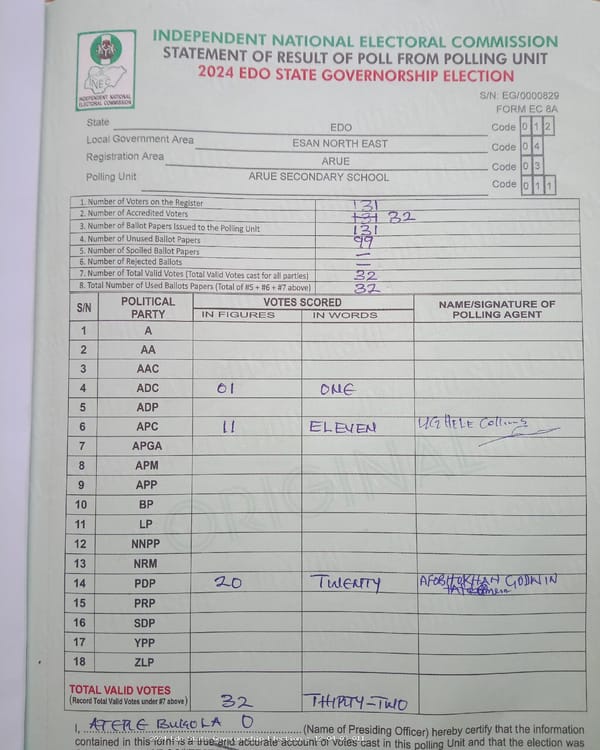 INDEPENDENT NATIONAL ELECTORAL COMMISSION
STATEMENT OF RESULT OF POLL FROM POLLING UNIT
2024 EDO STATE GOVERNORSHIP ELECTION
INEC
INDEPENDENT NATIONAL
ELECTORAL COMMISSION
S/N: EG/0000829
FORM EC 8A
State EDO Code 0 1 2
Local Government Area ESAN NORTH EAST Code 0 4
Registration Area ARUE Code 0 3
Polling Unit ARUE SECONDARY SCHOOL Code 0 1 1
1. Number of Voters on the Register 131
2. Number of Accredited Voters 131 32
3. Number of Ballot Papers Issued to the Polling Unit 131
4. Number of Unused Ballot Papers 99
5. Number of Spoiled Ballot Papers —
6. Number of Rejected Ballots —
7. Number of Total Valid Votes (Total Valid Votes cast for all parties) 32
8. Total Number of Used Ballots Papers (Total of #5 + #6 + #7 above) 32
S/N POLITICAL PARTY VOTES SCORED NAME/SIGNATURE OF POLLING AGENT
IN FIGURES IN WORDS
1 A
2 AA
3 AAC
4 ADC 01 ONE
5 ADP
6 APC 11 ELEVEN UGHELE Collins
7 APGA
8 APM
9 APP
10 BP
11 LP
12 NNPP
13 NRM
14 PDP 20 TWENTY GODWIN
15 PRP
16 SDP
17 YPP
18 ZLP
TOTAL VALID VOTES 32 THIRTY-TWO
(Record Total Valid Votes under #7 above)
ORIGINAL
I, ATERE BUKOLA O (Name of Presiding Officer) hereby certify that the information
contained in this form is a true and accurate account of votes cast in this polling unit and that the election was